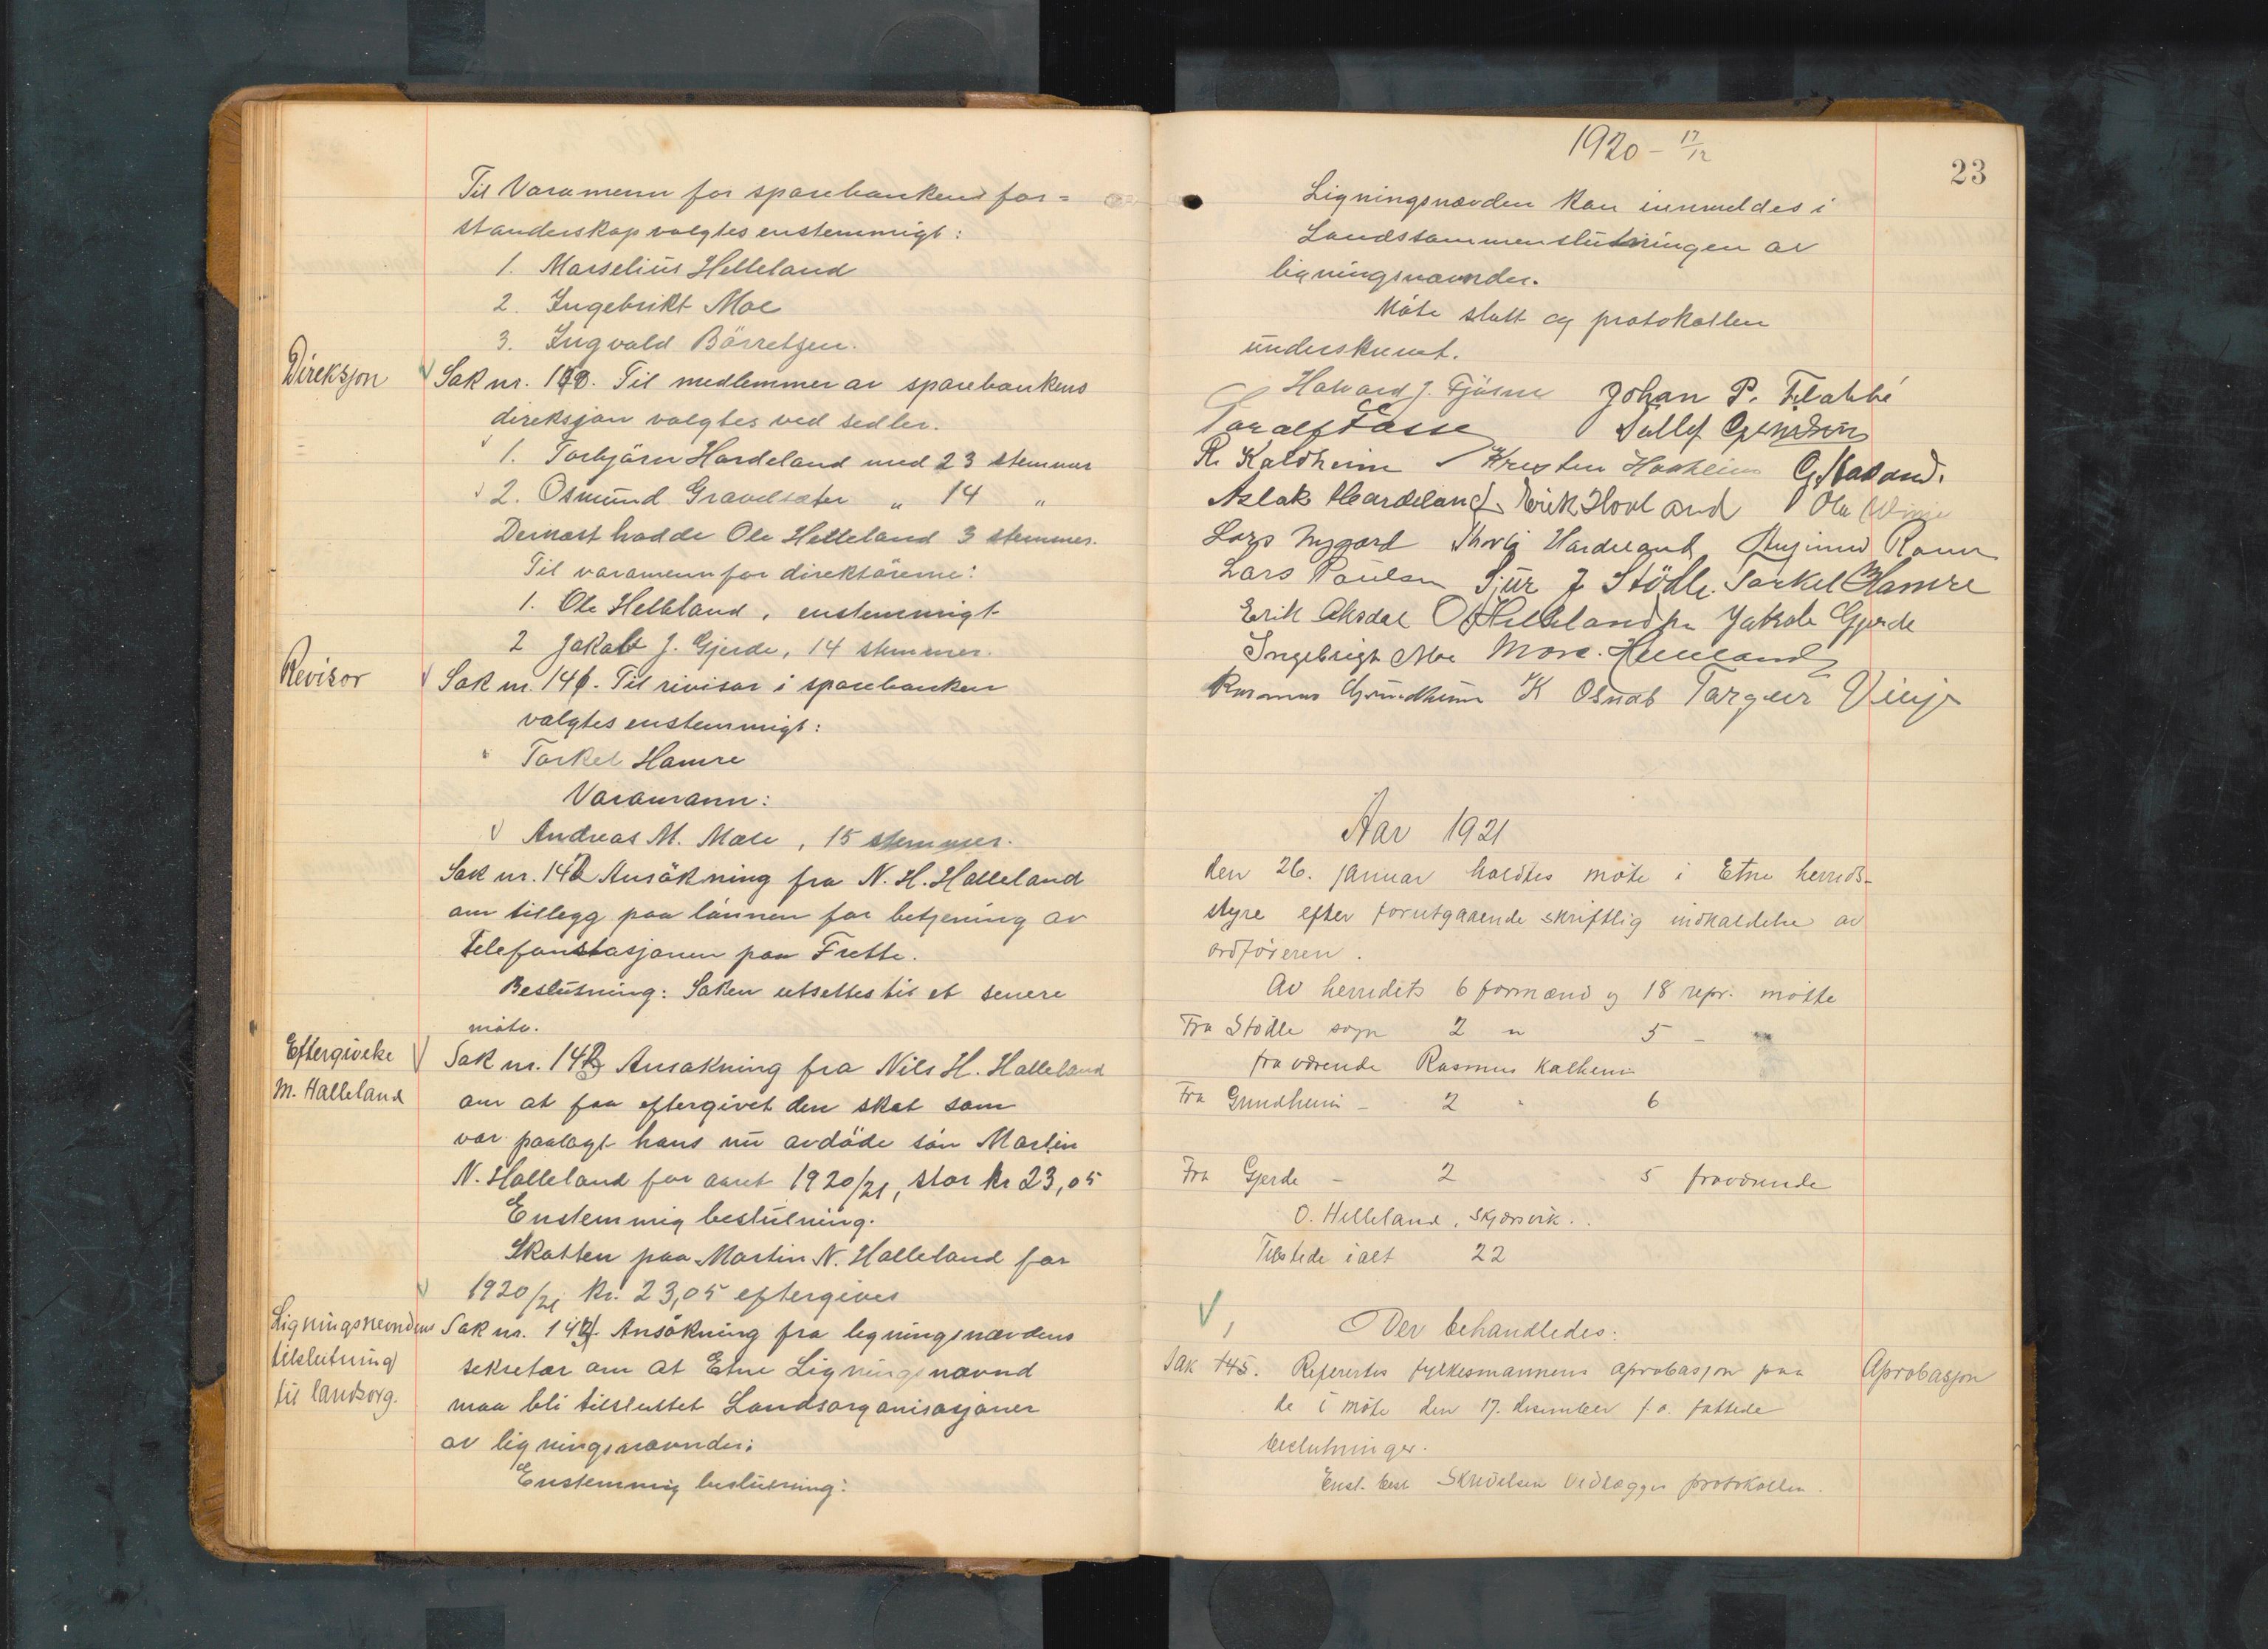 Til Varamenn for sparebankens for=
standerskap valgtes enstemmigt:
1. Marselius Helleland
2. Ingebrikt Moe
3. Ingvald Börretzen.
Direksjon
Sak nr. 140. Til medlemmer av sparebankens
direksjon valgtes ved sedler.
1. Torbjörn Hardeland med 23 stemmer
2. Osmund Gravelsæter " 14 "
Dernæst hadde Ole Helleland 3 stemmer.
Til varamenn for direktörerne:
1. Ole Helleland, enstemmigt
2 Jakob J. Gjerde, 14 stemmer.
Revisor
Sak nr. 141. Til rivisor i sparebanken
valgtes enstemmigt:
Torkel Hamre
Varamann:
Andreas M. Mæle, 15 stemmer.
Sak nr. 142 Ansökning fra N. H. Halleland
om tillegg paa lönnen for betjening av
Telefonstasjonen paa Frette.
Beslutning: Saken utsettes til et senere
möte.
Eftergivelse
M. Halleland
Sak nr. 143 Ansøkning fra Nils H. Halleland
om at faa eftergivet den skat som
var paalagt hans nu avdöde sön Martin
N. Halleland for aaret 1920/21, stor kr 23,05
Enstemmig beslutning.
Skatten paa Martin N. Halleland for
1920/21 kr. 23,05 eftergives
Ligningsnevndens
tilslutning
til landsorg.
Sak nr. 144. Ansökning fra ligningsnævdens
sekretær om at Etne Ligningsnævnd
maa bli tilsluttet Landsorganisasjonen
av ligningsnævnder:
Enstemmig beslutning:
1920 - 17/12
23
Ligningsnævden kan innmeldes i
Landssammenslutningen av
ligningsnævnder.
Möte slutt og protokollen
underskrevet.
Halvard J. Fjösne Johan P. Flabbé
Toralf Tesse Tallef Grindheim
R. Kaldheim Kristen Haaheim G. Haaland.
Aslak Hardeland Erik Hovland Ole Vinje
Lars Nygard Hardeland
Lars Paulsen Sjur J Stödle. Torkel Hamre
Erik Aksdal O Helleland jr Jakob Gjerde
Ingebrigt Moe Mars. Helleland
Rasmus Grindheim K Osnes Torgeir Vinje
Aar 1921
den 26. januar holdtes möte i Etne herreds-
styre efter forutgaaende skriftlig indkaldelse av
ordföreren.
Av herredets 6 formænd og 18 repr. mötte
Fra Stödle sogn 2 " 5 -
fraværende Rasmus Kalheim
Fra Grindheim - 2 " 6
Fra Gjerde - 2 5 fraværende
O. Helleland, Skjærsvik.
Tilstede ialt 22
Der behandledes:
Sak 145. Referertes fylkesmannens aprobasjon paa
Aprobasjon
de i möte den 17. desember f. a. fattede
beslutninger.
Enst. besl. Skrivelsen vedlægges protokollen.